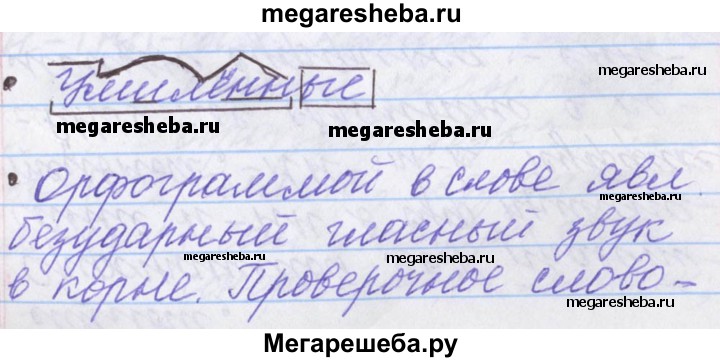 megaresheba.ru
• Умилённые
megaresheba.ru
megaresheba.ru megaresheba.ru
• Орфограммой в слове явл.
безударный гласный звук
megaresheba.ru megaresheba.ru
в корне. Проверочное слово-
megaresheba.ru megaresheba.ru
Мегарешеба.ру